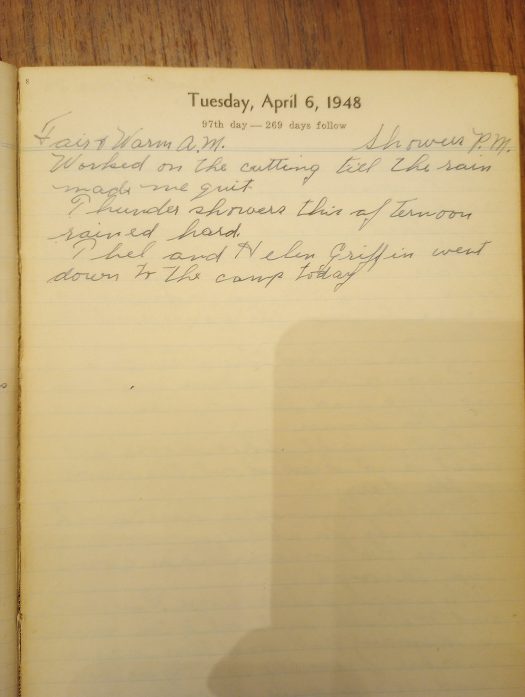 8
Tuesday, April 6, 1948
97th day — 269 days follow
Fair & Warm A.M. Showers P.M.
Worked on the cutting till the rain
made me quit
Thunder showers this afternoon
rained hard.
Thel and Helen Griffin went
down to the camp today